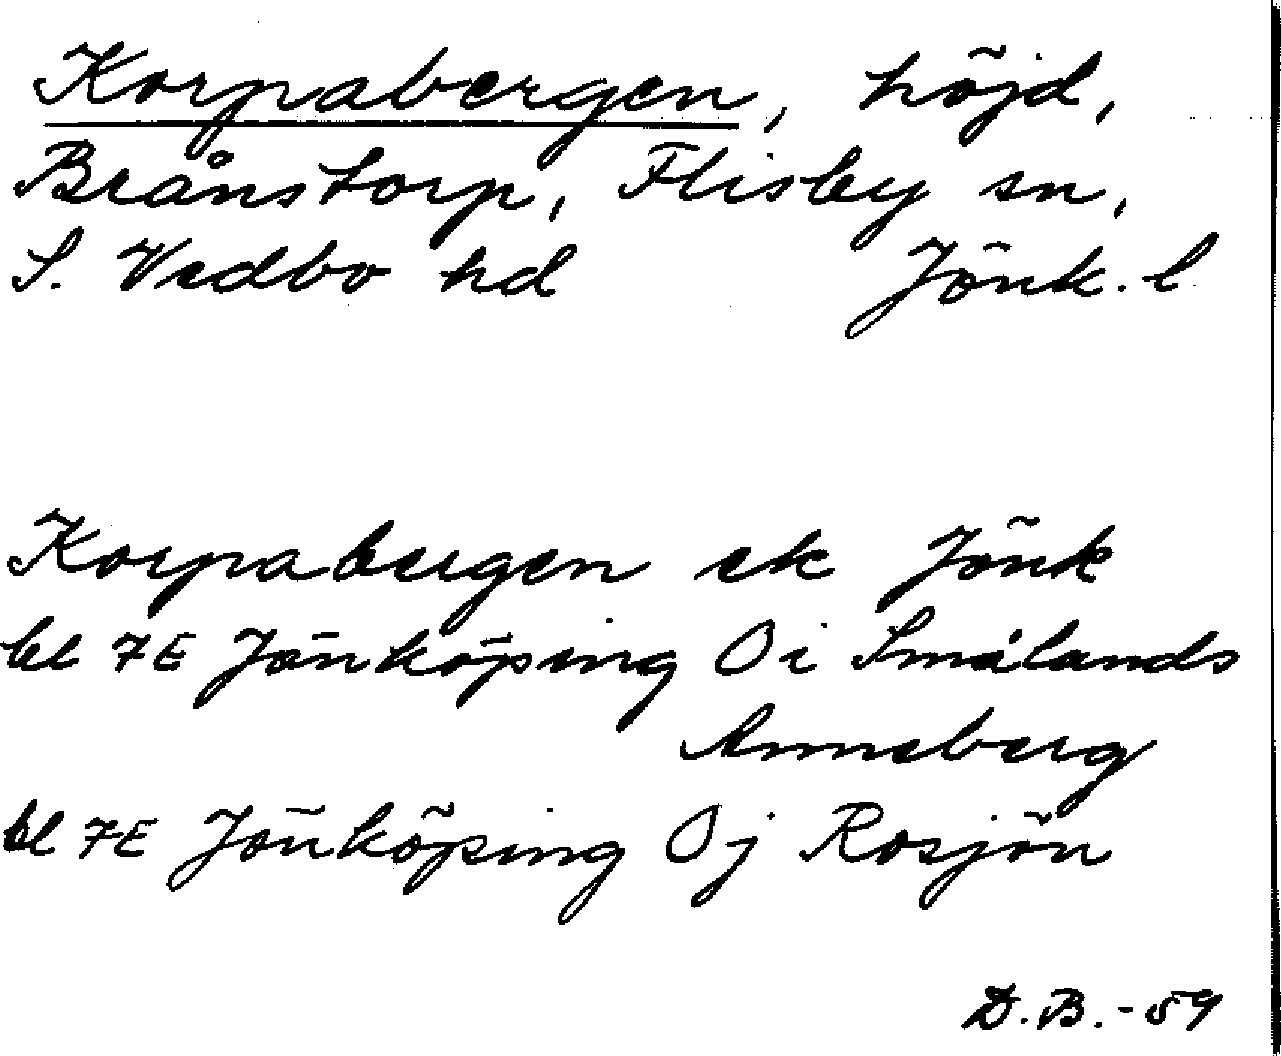 Korpabergen, höjd,
Brånstorp, Flisby sn,
S. Vedbo hd Jönk. l
Korpabergen ek Jönk
bl 7E Jönköping 0i Smålands
Anneberg
bl 7E Jönköping 0j Rosjön
D.B.-59